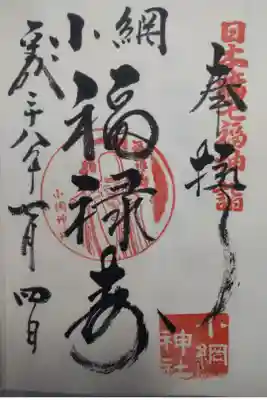 日本橋七福神詣
奉拝
小網
福禄寿
平成二十八年一月四日
小網神社
小網神社